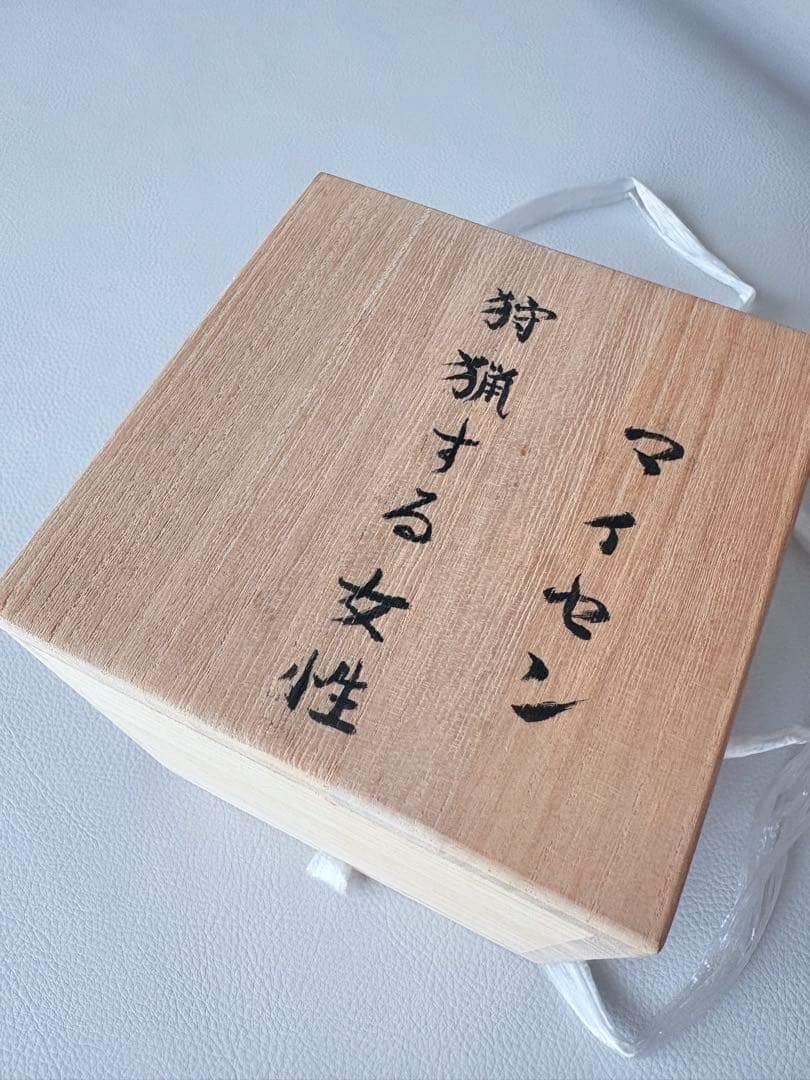 マイセン
狩猟する女性